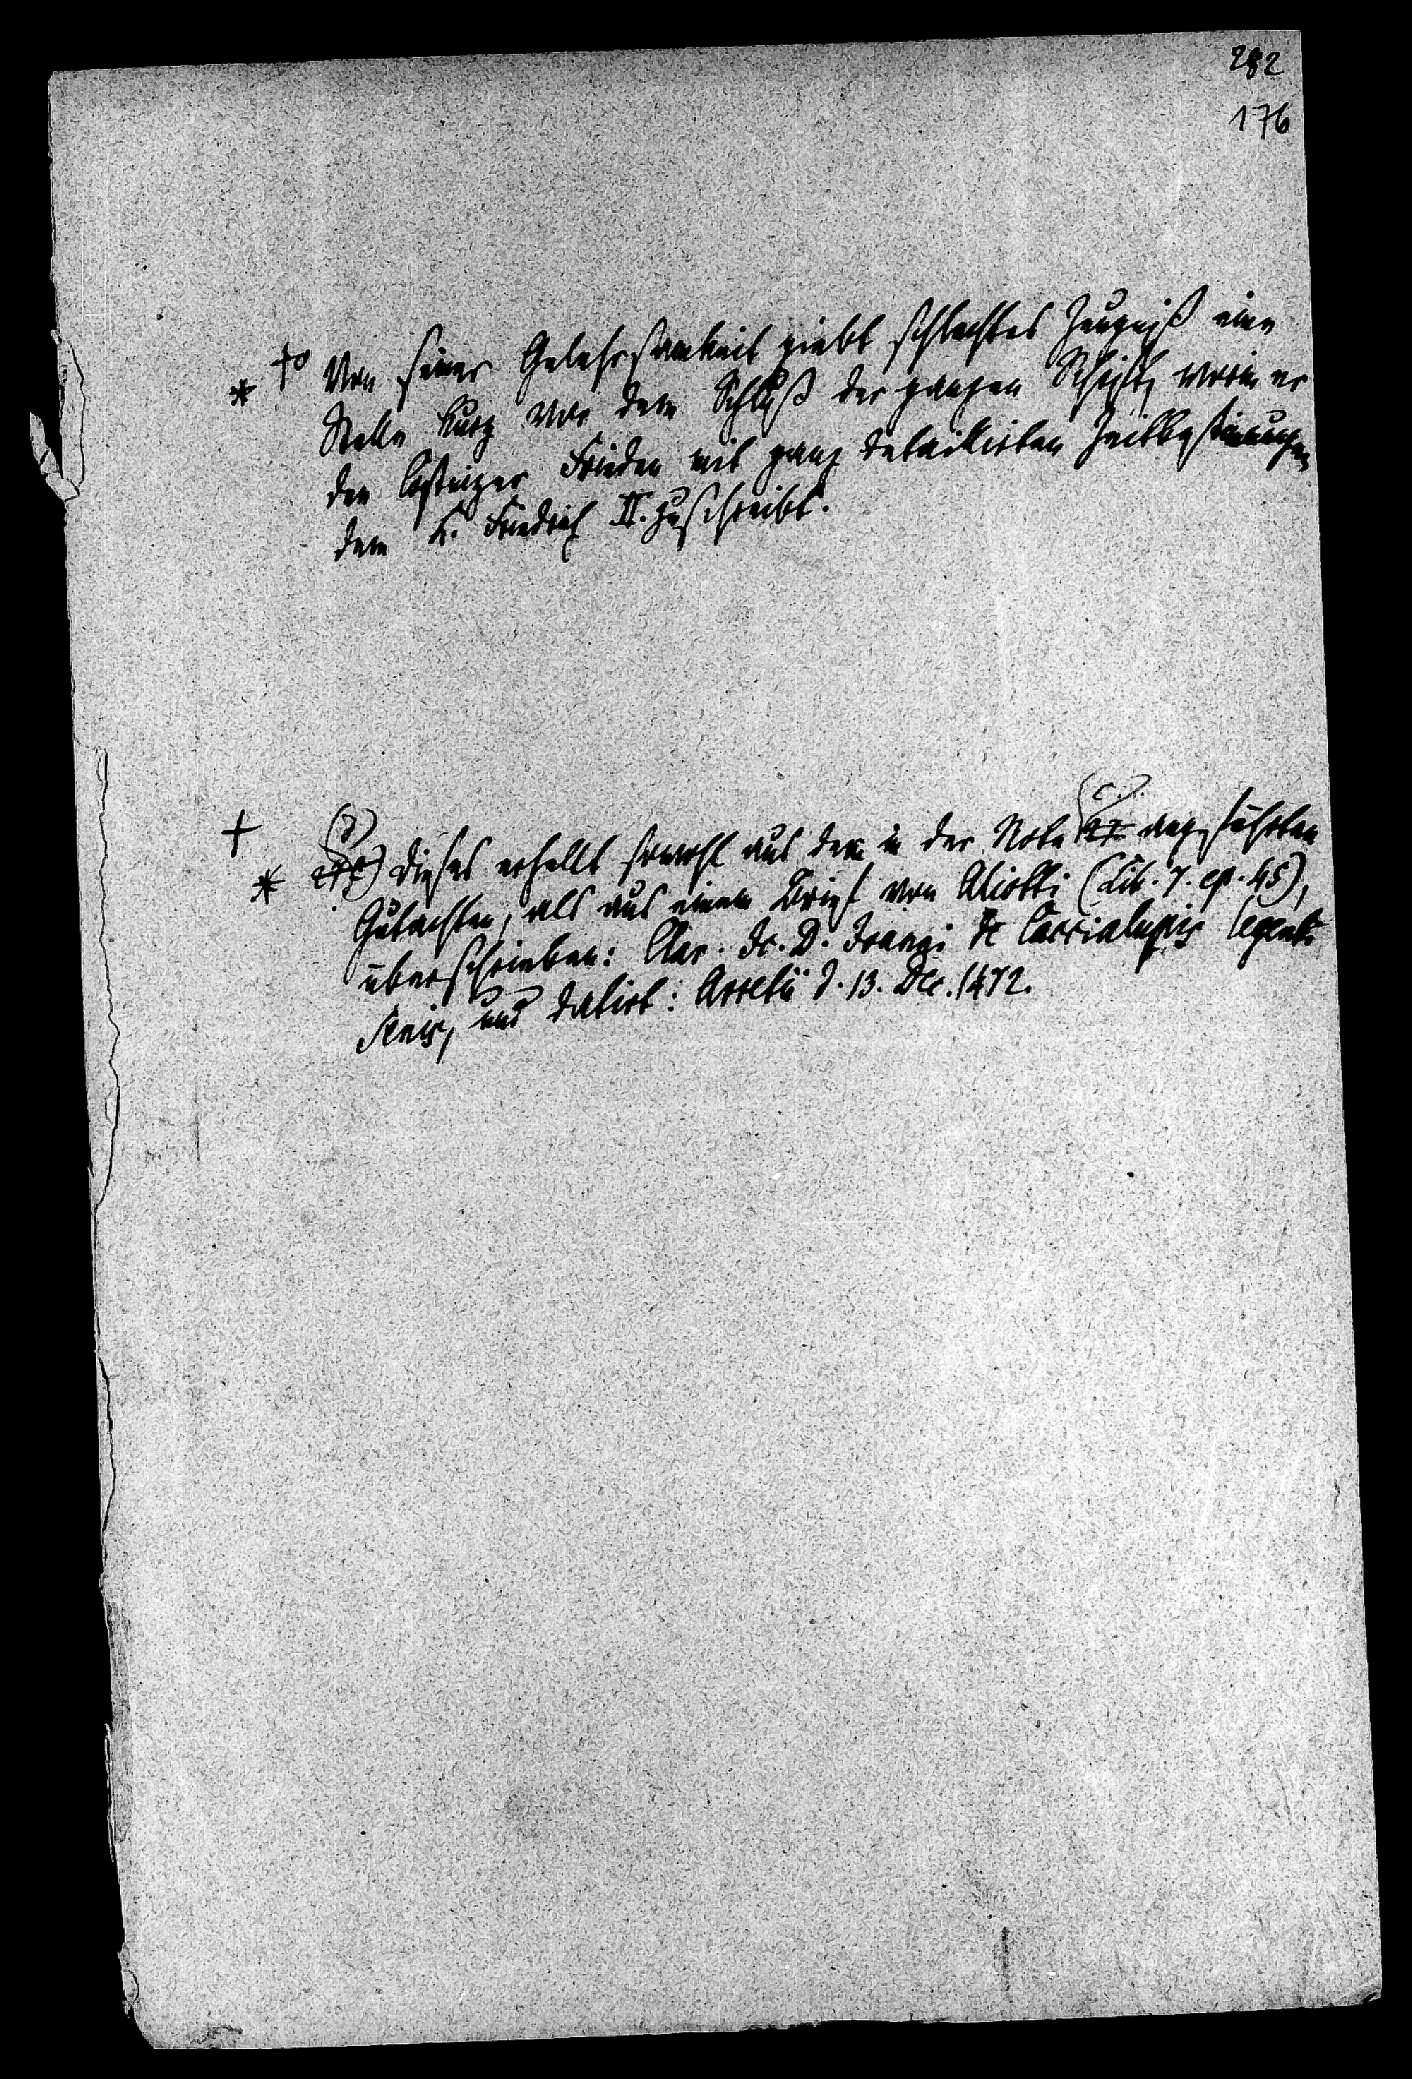 282
176
* +o Von seiner Gelehrsamkeit giebt schlechtes Zeugniß eine
Stelle kurz vor dem Schluß der ganzen Schrift, worin er
den Costnizer Frieden mit ganz detaillirten Zeitbestimmungen
dem K. Friedrich II. zuschreibt.
+
* (d) dieses erhellt sowohl aus dem in der Note (c) angeführten
Gutachten, als aus einem Brief von Aliotti (Lib. 7. ep. 45),
überschrieben: Clar. Dr. D. de Caccialupis legenti
Senis, und datirt: Arretii d. 13. Dec. 1472.